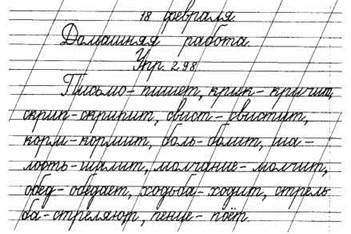 18 февраля.
Домашняя работа.
Упр. 298
Письмо - пишет, крик - кричит,
скрип - скрипит, свист - свистит,
корм - кормит, боль - болит, ша-
лость - шалит, молчание - молчит,
обед - обедает, ходьба - ходит, стрель
ба - стреляют, пение - поёт